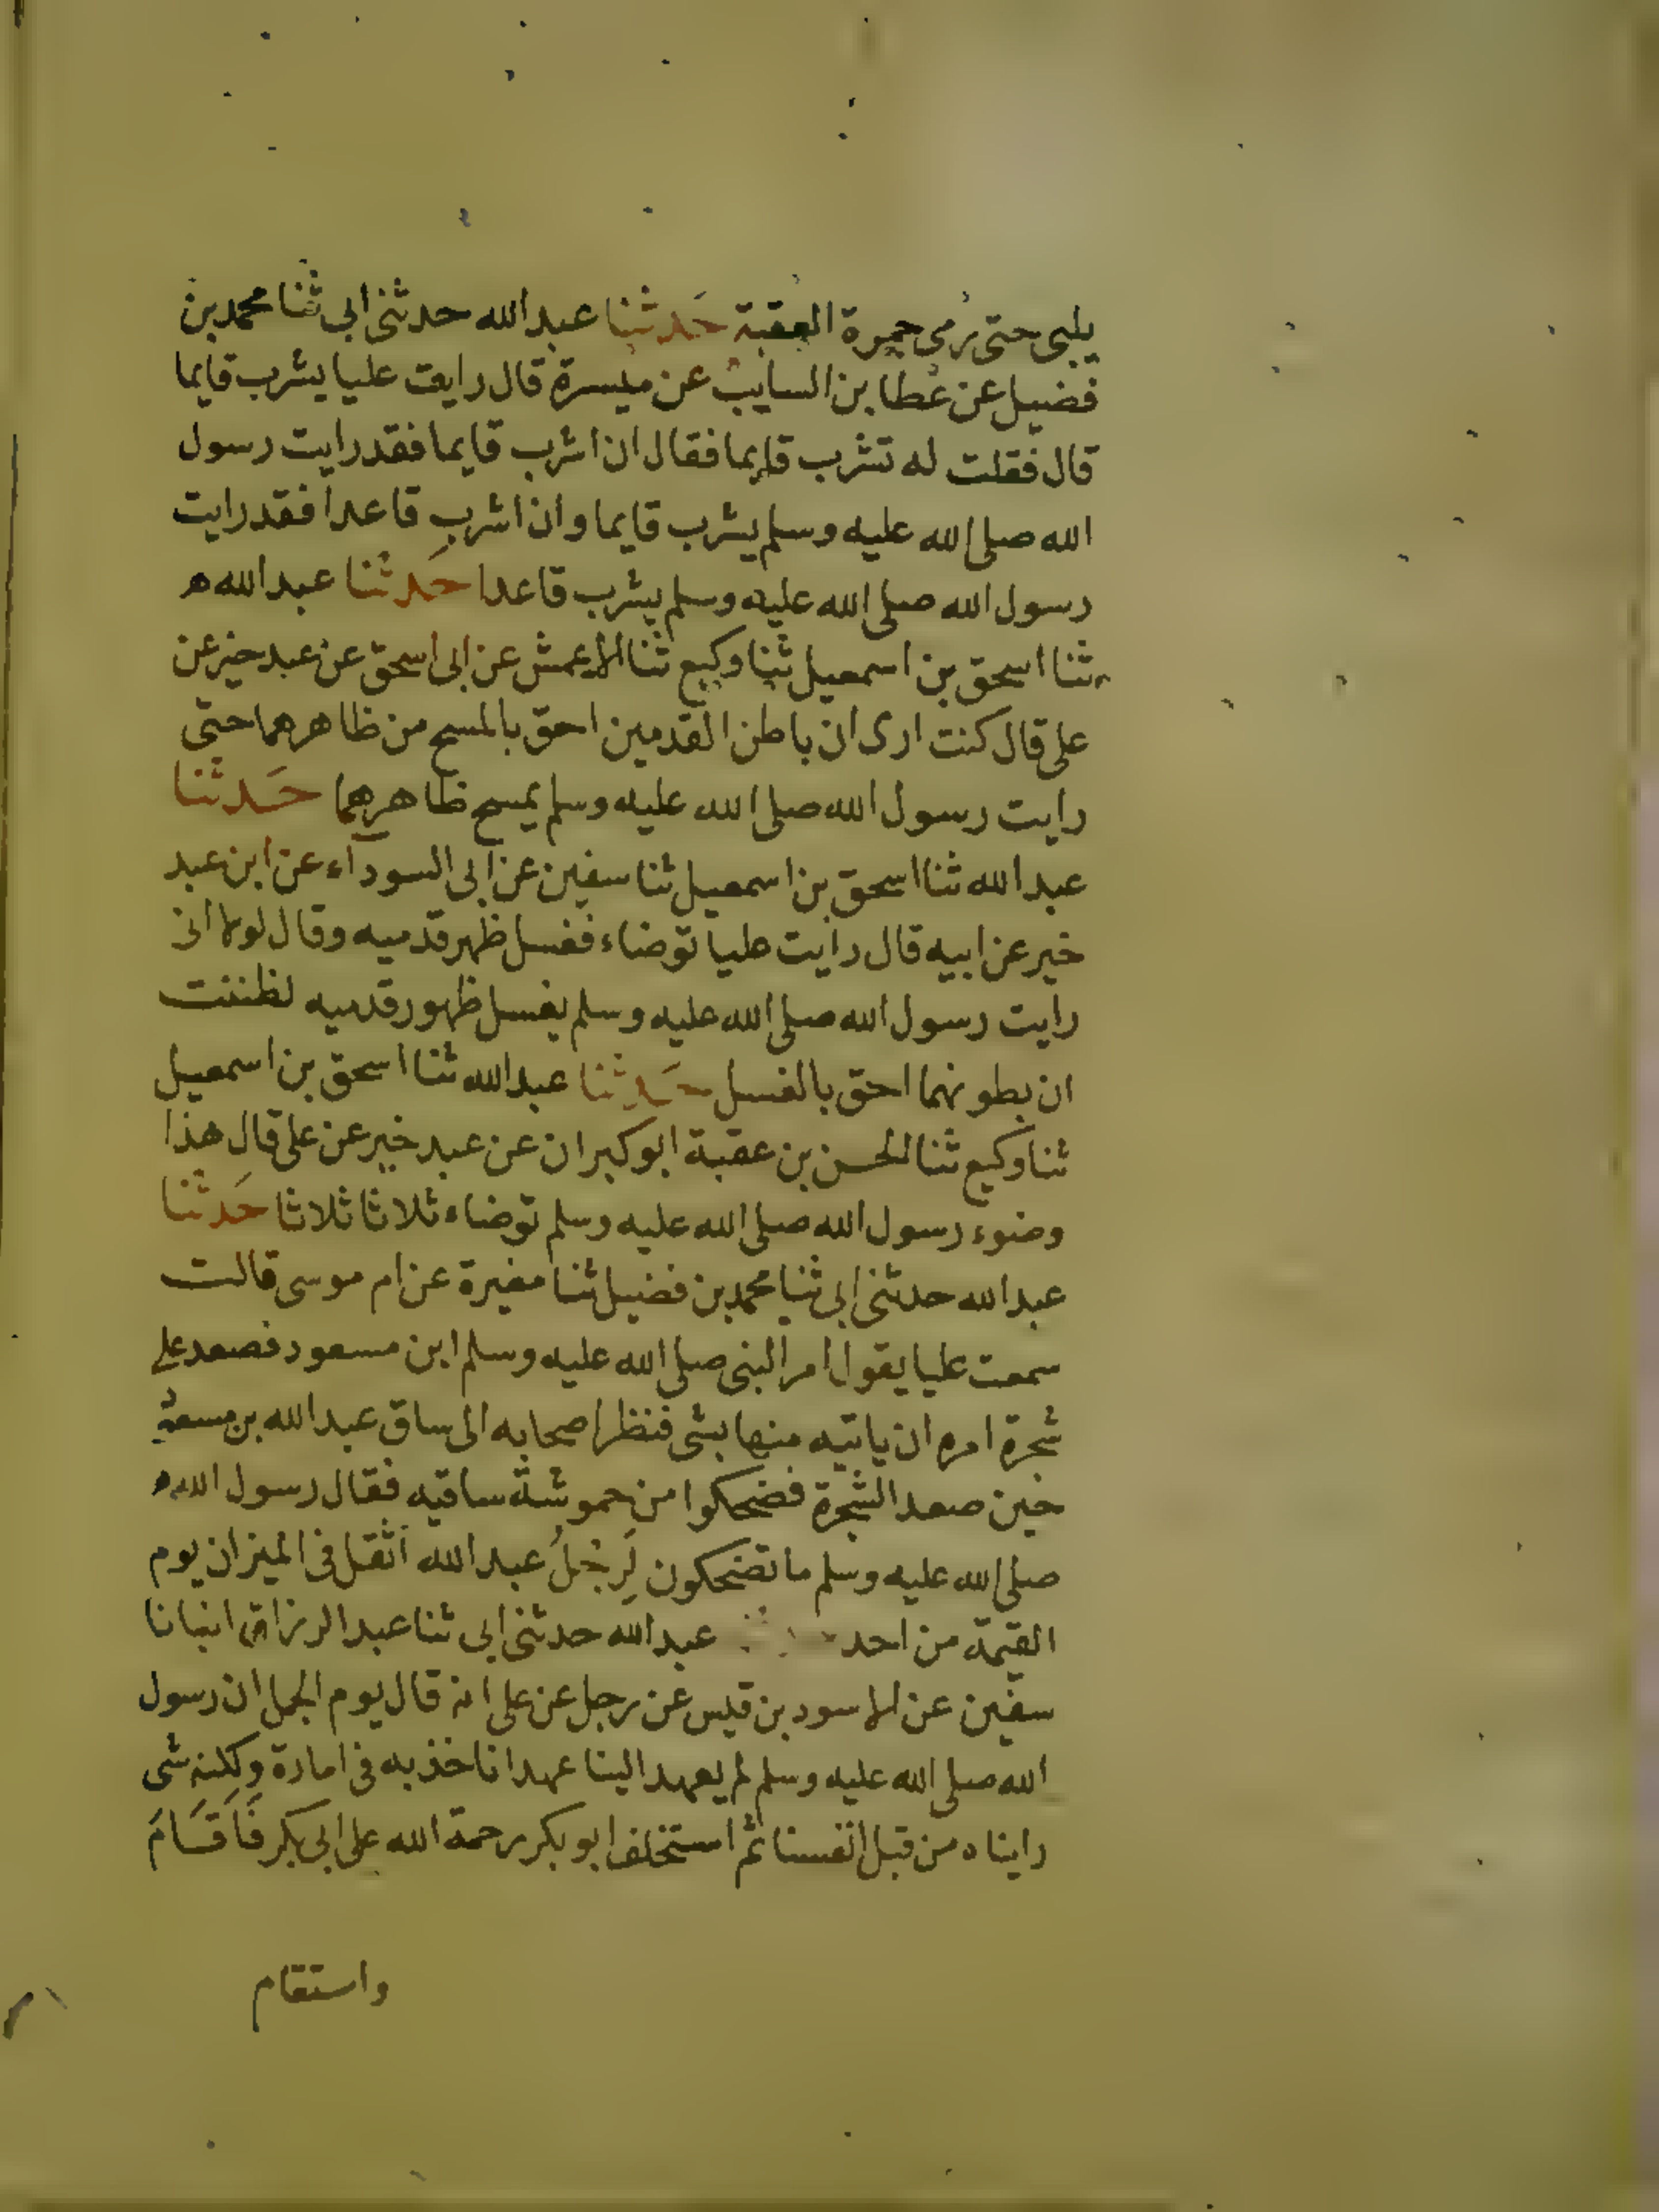 يلبى حتى رمى جمرة العقبة حَدثنا عبدالله حدثنى ابى ثنا محمد بن
فضيل عن عطا بن السايب عن ميسرة قال رايت عليا يشرب قايما
قال فقلت له تشرب قايما فقال ان اشرب قايما فقد رايت رسول
الله صلى الله عليه وسلم يشرب قايما وان اشرب قاعدا فقد رايت
رسول الله صلى الله عليه وسلم يشرب قاعدا حَدثنا عبدالله
ثنا اسحق بن اسمعيل ثنا وكيع ثنا الاعمش عن ابى اسحق عن عبد خير عن
على قال كنت ارى ان باطن القدمين احق بالمسح من ظاهرهما حتى
رايت رسول الله صلى الله عليه وسلم يمسح ظاهرهما حَدثنا
عبدالله ثنا اسحق بن اسمعيل ثنا سفين عن ابى السودآء عن ابن عبد
خير عن ابيه قال رايت عليا توضاء فغسل ظهر قدميه وقال لولا انى
رايت رسول الله صلى الله عليه وسلم يغسل ظهور قدميه لظننت
ان بطونهما احق بالغسل حَدثنا عبدالله ثنا اسحق بن اسمعيل
ثنا وكيع ثنا الحسن بن عقبة ابو كبران عن عبد خير عن على قال هذا
وضوء رسول الله صلى الله عليه وسلم توضاء ثلاثا ثلاثا حَدثنا
عبدالله حدثنى ابى ثنا محمد بن فضيل ثنا مغيرة عن ام موسى قالت
سمعت عليا يقول امر النبى صلى الله عليه وسلم ابن مسعود فصعد على
شجرة امره ان ياتيه منها بشى فنظر اصحابه الى ساق عبدالله بن مسعود
حين صعد الشجرة فضحكوا من حموشة ساقيه فقال رسول الله
صلى الله عليه وسلم ما تضحكون لَرِجْلُ عبدالله اثقل فى الميزان يوم
القيمة من احد حدثنا عبدالله حدثنى ابى ثنا عبدالرزاق انبانا
سفين عن الاسود بن قيس عن رجل عن على انه قال يوم الجمل ان رسول
الله صلى الله عليه وسلم لم يعهد الينا عهدا ناخذ به فى امارة ولكنه شى
رايناه من قبل انفسنا ثم استخلف ابو بكر رحمة الله على ابى بكر فَاَقَامَ
واستقام